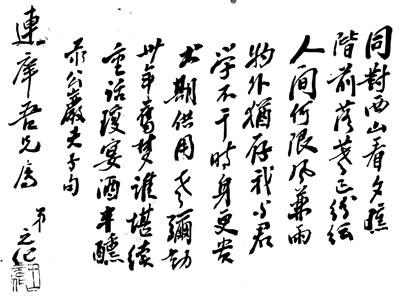 同對西山看夕曛
階前落葉正紛紜
人間何限風兼雨
物外猶存我與君
學不干時身更貴
書期供用老彌勤
卅年舊夢誰堪續
重話瓊宴酒半醺
录公巖夫子句
連庠吾兄屬
弟之伦